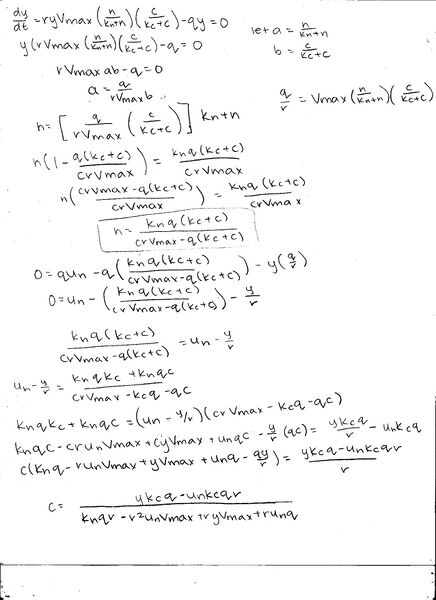 dy/dt = ryVmax(n/(Kn+n))(c/(Kc+c)) - qy = 0
let a = n/(Kn+n)
y(rVmax(n/(Kn+n))(c/(Kc+c)) - q = 0
b = c/(Kc+c)
rVmax ab - q = 0
a = q/(rVmax b)
q/r = Vmax(n/(Kn+n))(c/(Kc+c))
n = [q/(rVmax)(c/(Kc+c))] Kn+n
n(1 - q(Kc+c)/(crVmax)) = Knq(Kc+c)/(crVmax)
n((crVmax - q(Kc+c))/(crVmax)) = Knq(Kc+c)/(crVmax)
n = Knq(Kc+c)/(crVmax - q(Kc+c))
0 = qun - q(Knq(Kc+c)/(crVmax - q(Kc+c))) - y(q/r)
0 = un - (Knq(Kc+c)/(crVmax - q(Kc+c))) - y/r
Knq(Kc+c)/(crVmax - q(Kc+c)) = un - y/r
un - y/r = (KnqKc + Knqc)/(crVmax - Kcq - qc)
KnqKc + Knqc = (un - y/r)(crVmax - Kcq - qc)
Knqc - crunVmax + cyVmax + unqc - y/r(qc) = yKcq/r - unKcq
c(Knq - runVmax + yVmax + unq - qy/r) = (yKcq - unKcqr)/r
c = (yKcq - unKcqr)/(Knqr - r²unVmax + ryVmax + runq)